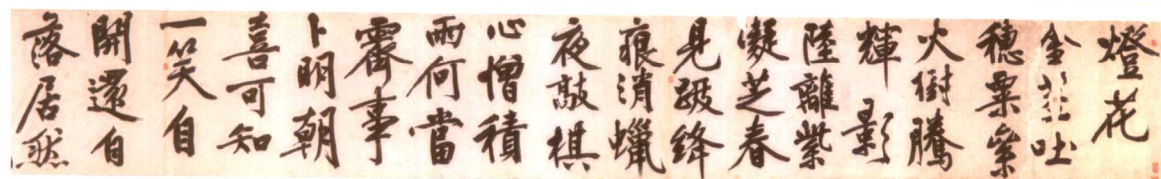 燈花
金吐
穗粟纍
火樹騰
輝影
陸離紫
凝芝春
見跋絳
痕消蠟
夜敲棋
心憎積
雨何當
霽事
卜明朝
喜可知
一笑自
開還自
落居然